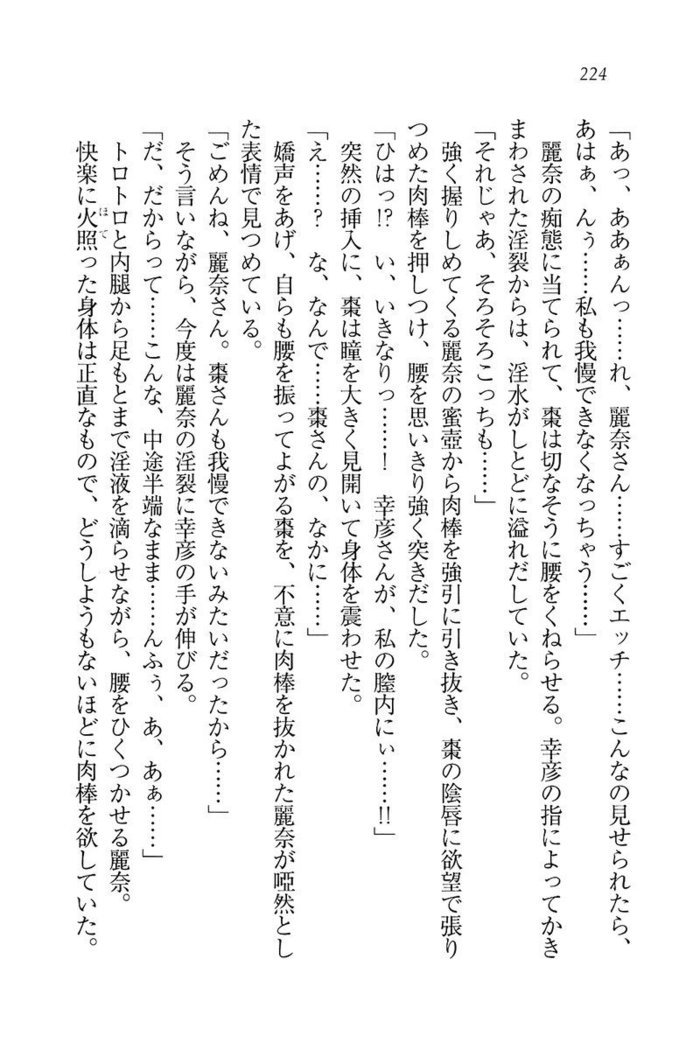 224
「あっ、ああぁんっ……れ、麗奈さん……すごくエッチ……こんなの見せられたら、
あはぁ、んぅ……私も我慢できなくなっちゃう……」
麗奈の痴態に当てられて、棗は切なそうに腰をくねらせる。幸彦の指によってかき
まわされた淫裂からは、淫水がしとどに溢れだしていた。
「それじゃあ、そろそろこっちも……」
強く握りしめてくる麗奈の蜜壺から肉棒を強引に引き抜き、棗の陰唇に欲望で張り
つめた肉棒を押しつけ、腰を思いきり強く突きだした。
「ひはっ!? い、いきなりっ……! 幸彦さんが、私の膣内にぃ……!!」
突然の挿入に、棗は瞳を大きく見開いて身体を震わせた。
「え……? な、なんで……棗さんの、なかに……」
嬌声をあげ、自らも腰を振ってよがる棗を、不意に肉棒を抜かれた麗奈が啞然とし
た表情で見つめている。
「ごめんね、麗奈さん。棗さんも我慢できないみたいだったから……」
そう言いながら、今度は麗奈の淫裂に幸彦の手が伸びる。
「だ、だからって……こんな、中途半端なまま……んふぅ、あ、あぁ……」
トロトロと内腿から足もとまで淫液を滴らせながら、腰をひくつかせる麗奈。
快楽に火照った身体は正直なもので、どうしようもないほどに肉棒を欲していた。
ほて